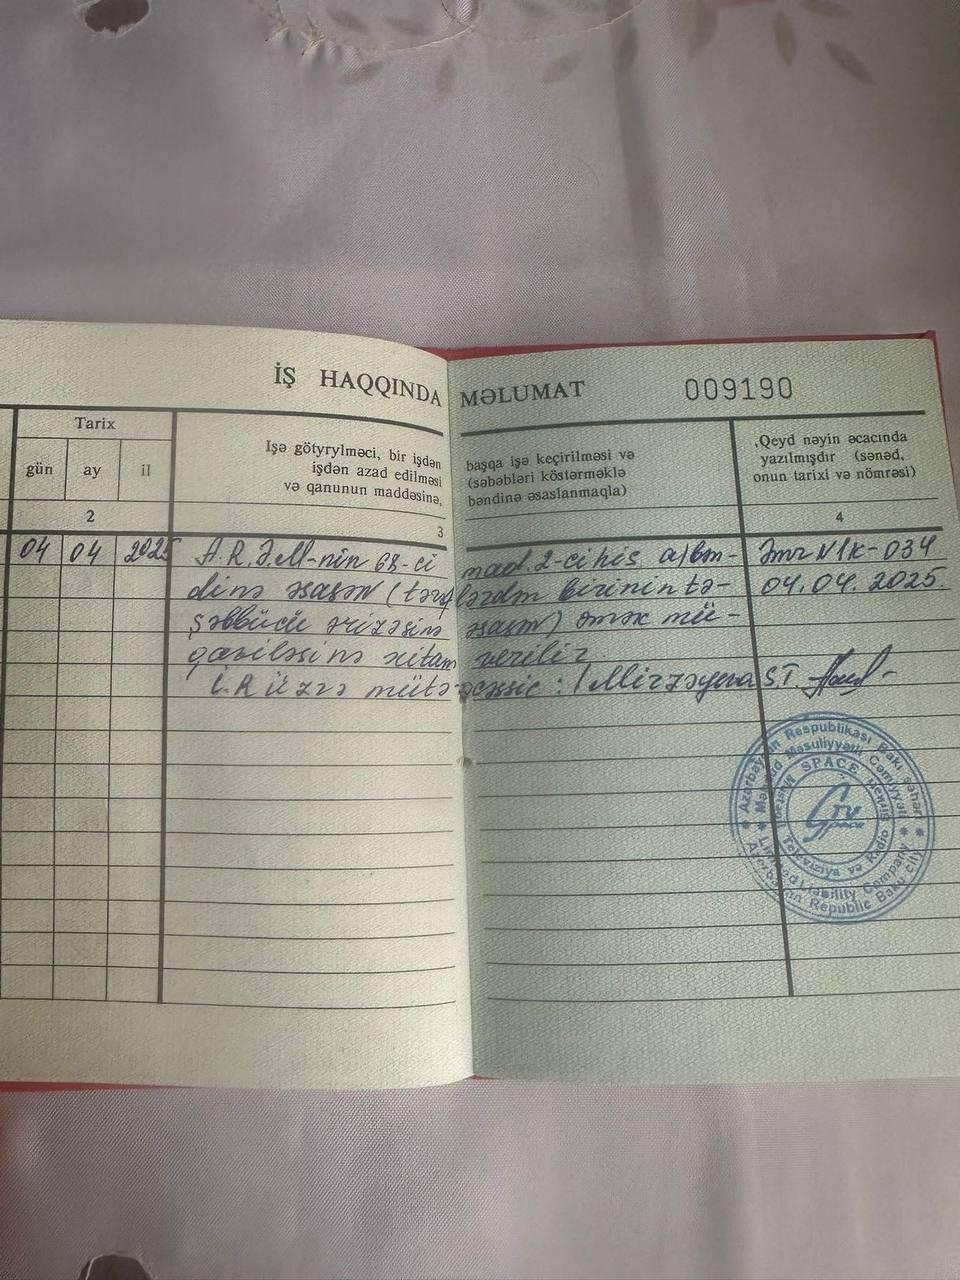 İŞ HAQQINDA MƏLUMAT 009190
Tarix
gün ay il
Işə götyrylməci, bir işdən başqa işə keçirilməsi və
işdən azad edilməsi (səbəbləri köstərməklə
və qanunun maddəsinə, bəndinə əsaslanmaqla)
,Qeyd nəyin əcacında
yazılmışdır (sənəd,
onun tarixi və nömrəsi)
2 3 4
04 04 2025 A.R.Ə.M-nin 68-ci mad. 2-ci his a) bən- Əmr N 1K-034
dinə əsasən (tərəflərdən birinin tə- 04.04.2025.
şəbbüsü ərizəsinə əsasən) əmək mü-
qaviləsinə xitam verilir.
İ.R üzrə mütəxəssis: Mirzəyeva S.T.
Azərbaycan Respublikası Bakı şəhəri
Məhdud Məsuliyyətli Cəmiyyəti
SPACE
Müstəqil
Televiziya və Radio Şirkəti
TV
SPACE
Limited Liability Company
Azerbaijan Republic Baku city